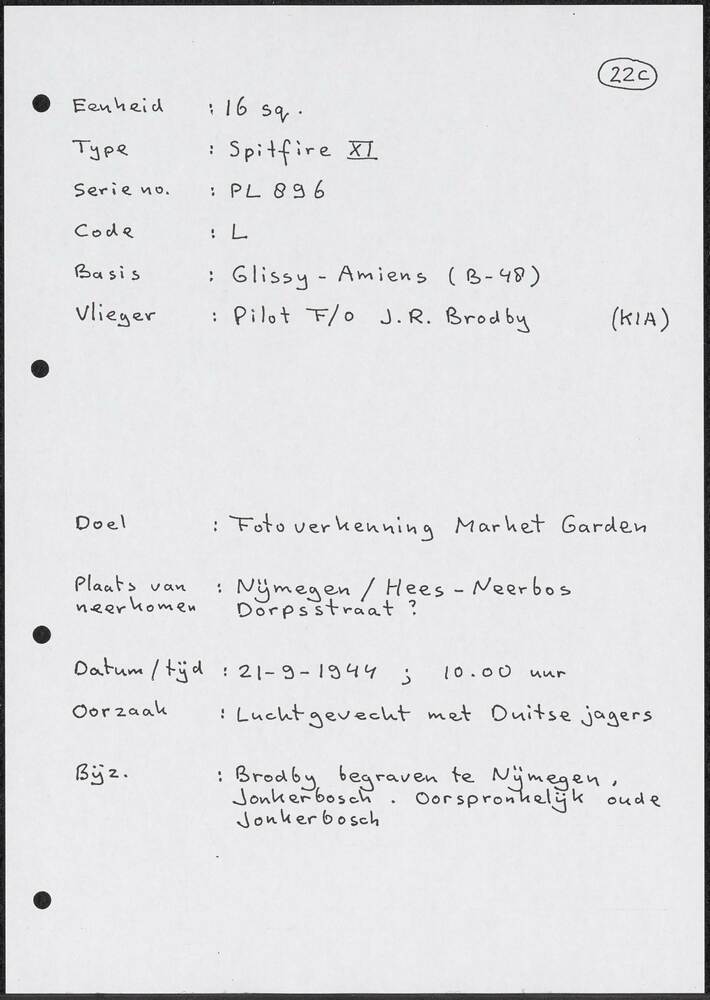 22C
Eenheid : 16 sq.
Type : Spitfire XI
Serie no. : PL 896
Code : L
Basis : Glissy - Amiens (B-48)
Vlieger : Pilot F/o J.R. Brodby (KIA)
Doel : Foto verkenning Market Garden
Plaats van : Nijmegen / Hees - Neerbos
neerkomen Dorpsstraat ?
Datum / tijd : 21-9-1944 ; 10.00 uur
Oorzaak : Luchtgevecht met Duitse jagers
Bijz. : Brodby begraven te Nijmegen,
Jonkerbosch . Oorspronkelijk oude
Jonkerbosch